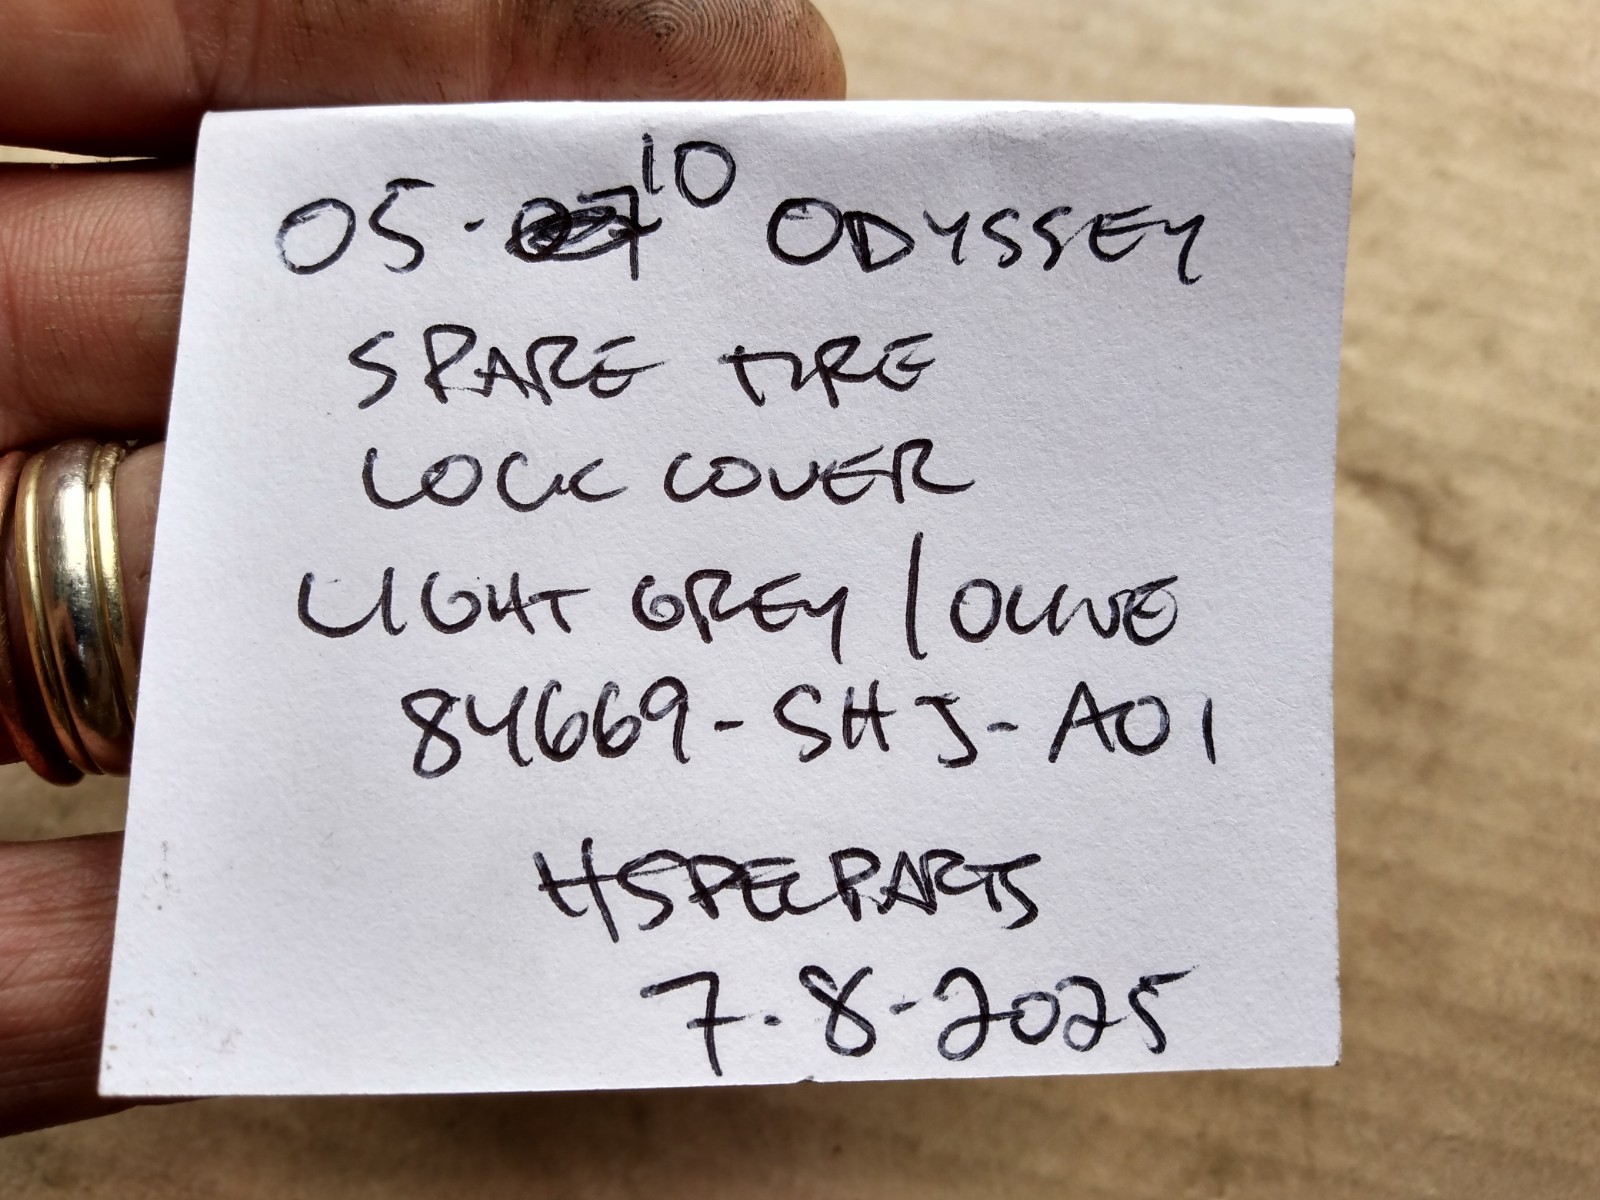 05-10 ODYSSEY
SPARE TIRE
LOCK COVER
LIGHT GREY/OLIVE
84669-SHJ-A01
HSPECPARTS
7.8-2025